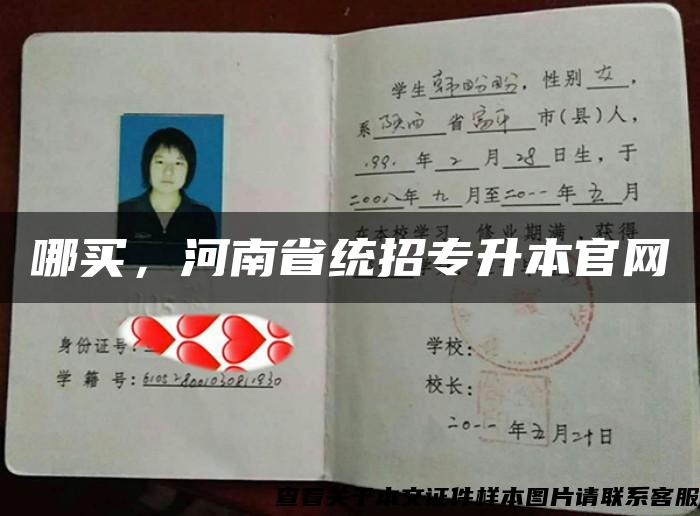 学生韩盼盼，性别女，
系陕西省富平市(县)人，
1991年2月28日生，于
二00八年九月至二0一一年五月
在本校学习 修业期满，获得
哪买，河南省统招专升本官网
身份证号：
学籍号：
学校：
校长：
二0一一年五月二十日
查看关于本文证件样本图片请联系客服